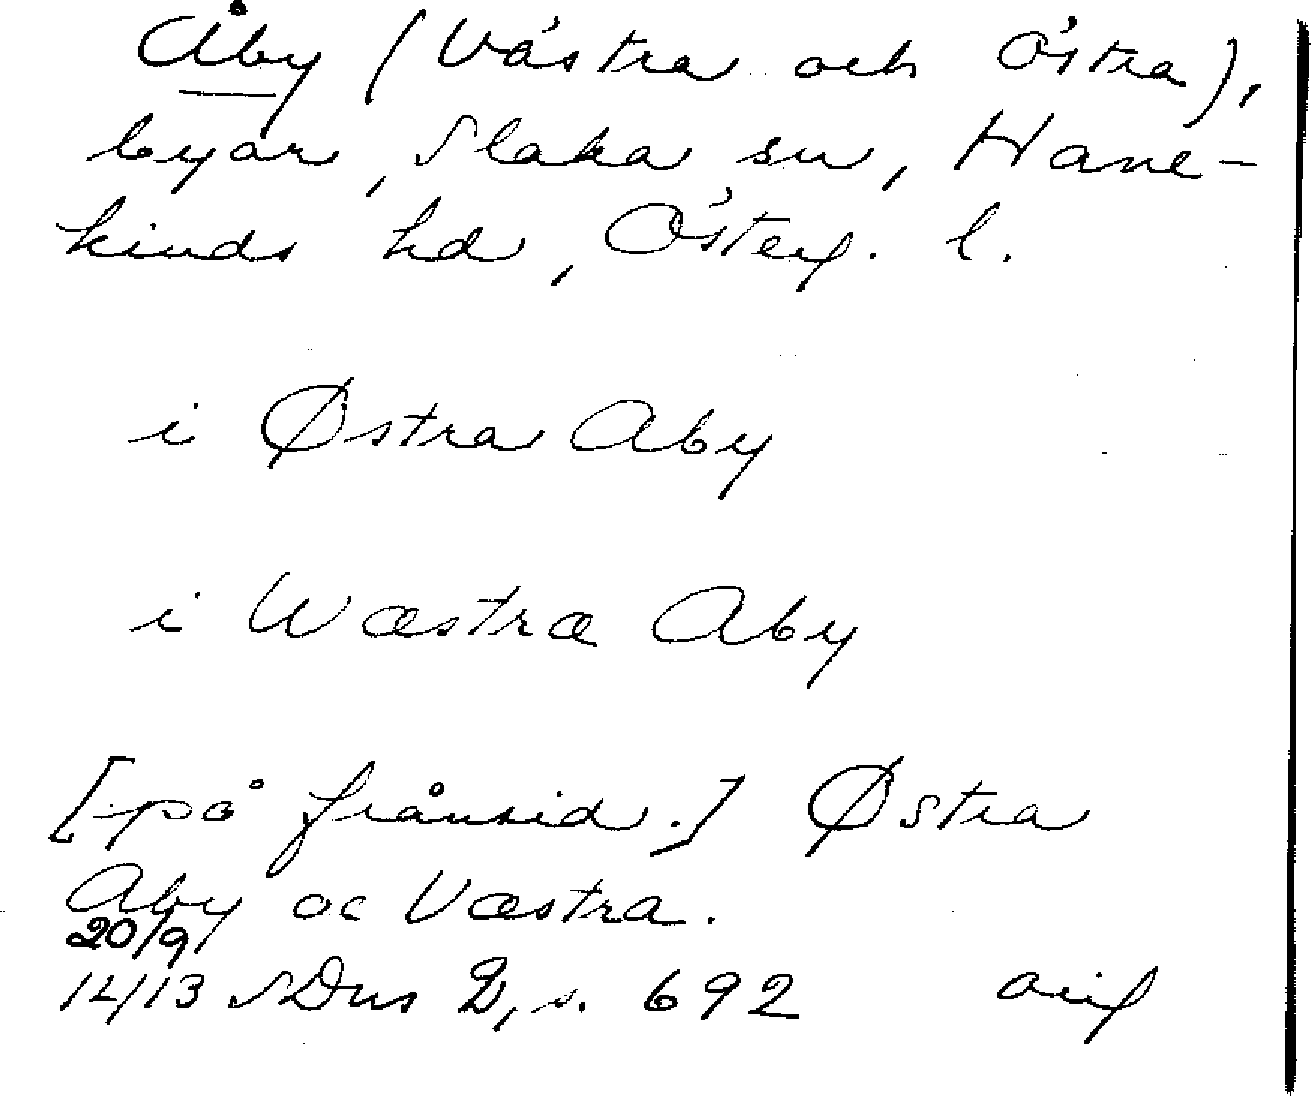 Åby (Västra och Östra),
byar, Slaka sn, Hane-
kinds hd, Österg. l.
i Østra Aby
i Wæstræ Aby
[på frånsid.] Østra
Aby oc Væstra.
20/9
1413 SDns 2, s. 692 orig